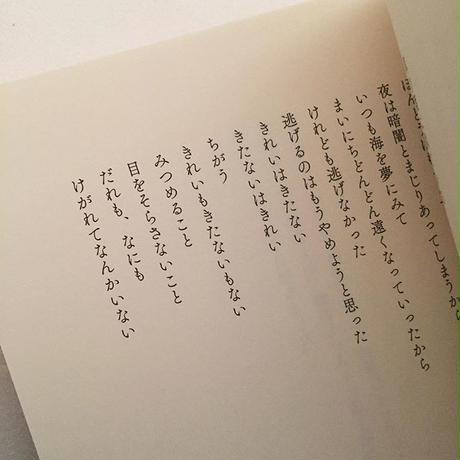 夜は暗闇とまじりあってしまうから
いつも海を夢にみて
まいにちどんどん遠くなっていったから
けれども逃げなかった
逃げるのはもうやめようと思った
きれいはきたない
きたないはきれい
ちがう
きれいもきたないもない
みつめること
目をそらさないこと
だれも、なにも
けがれてなんかいない